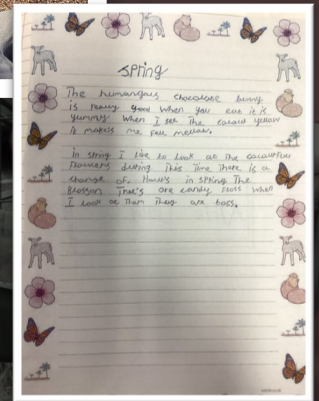 Spring
The humongus chocolate bunny
is really good when you eat it is
yummy. When I see the colour yellow
it makes me feel mellow.
In spring I like to look at the colourful
flowers during this time there is a
change of. Hours in spring The
Blossom Tree's are candy floss when
I look at them they are boss.